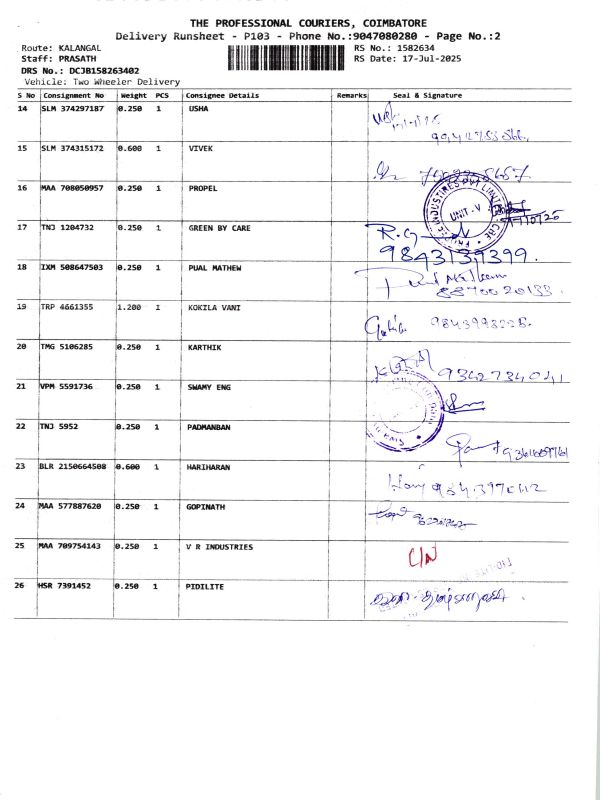 THE PROFESSIONAL COURIERS, COIMBATORE
Delivery Runsheet - P103 - Phone No.:9047080280 - Page No.:2
Route: KALANGAL RS No.: 1582634
Staff: PRASATH RS Date: 17-Jul-2025
DRS No.: DCJB158263402
Vehicle: Two Wheeler Delivery
S No Consignment No Weight PCS Consignee Details Remarks Seal & Signature
14 SLM 374297187 0.250 1 USHA
15 SLM 374315172 0.600 1 VIVEK
16 MAA 708050957 0.250 1 PROPEL
UNIT-V
17 TNJ 1204732 0.250 1 GREEN BY CARE
9843139399.
18 IXM 508647503 0.250 1 PUAL MATHEW
8870020133
19 TRP 4661355 1.200 1 KOKILA VANI
20 TMG 5106285 0.250 1 KARTHIK
9342734041
21 VPM 5591736 0.250 1 SWAMY ENG
22 TNJ 5952 0.250 1 PADMANBAN
23 BLR 2150664508 0.600 1 HARIHARAN
24 MAA 577887620 0.250 1 GOPINATH
25 MAA 709754143 0.250 1 V R INDUSTRIES
26 HSR 7391452 0.250 1 PIDILITE